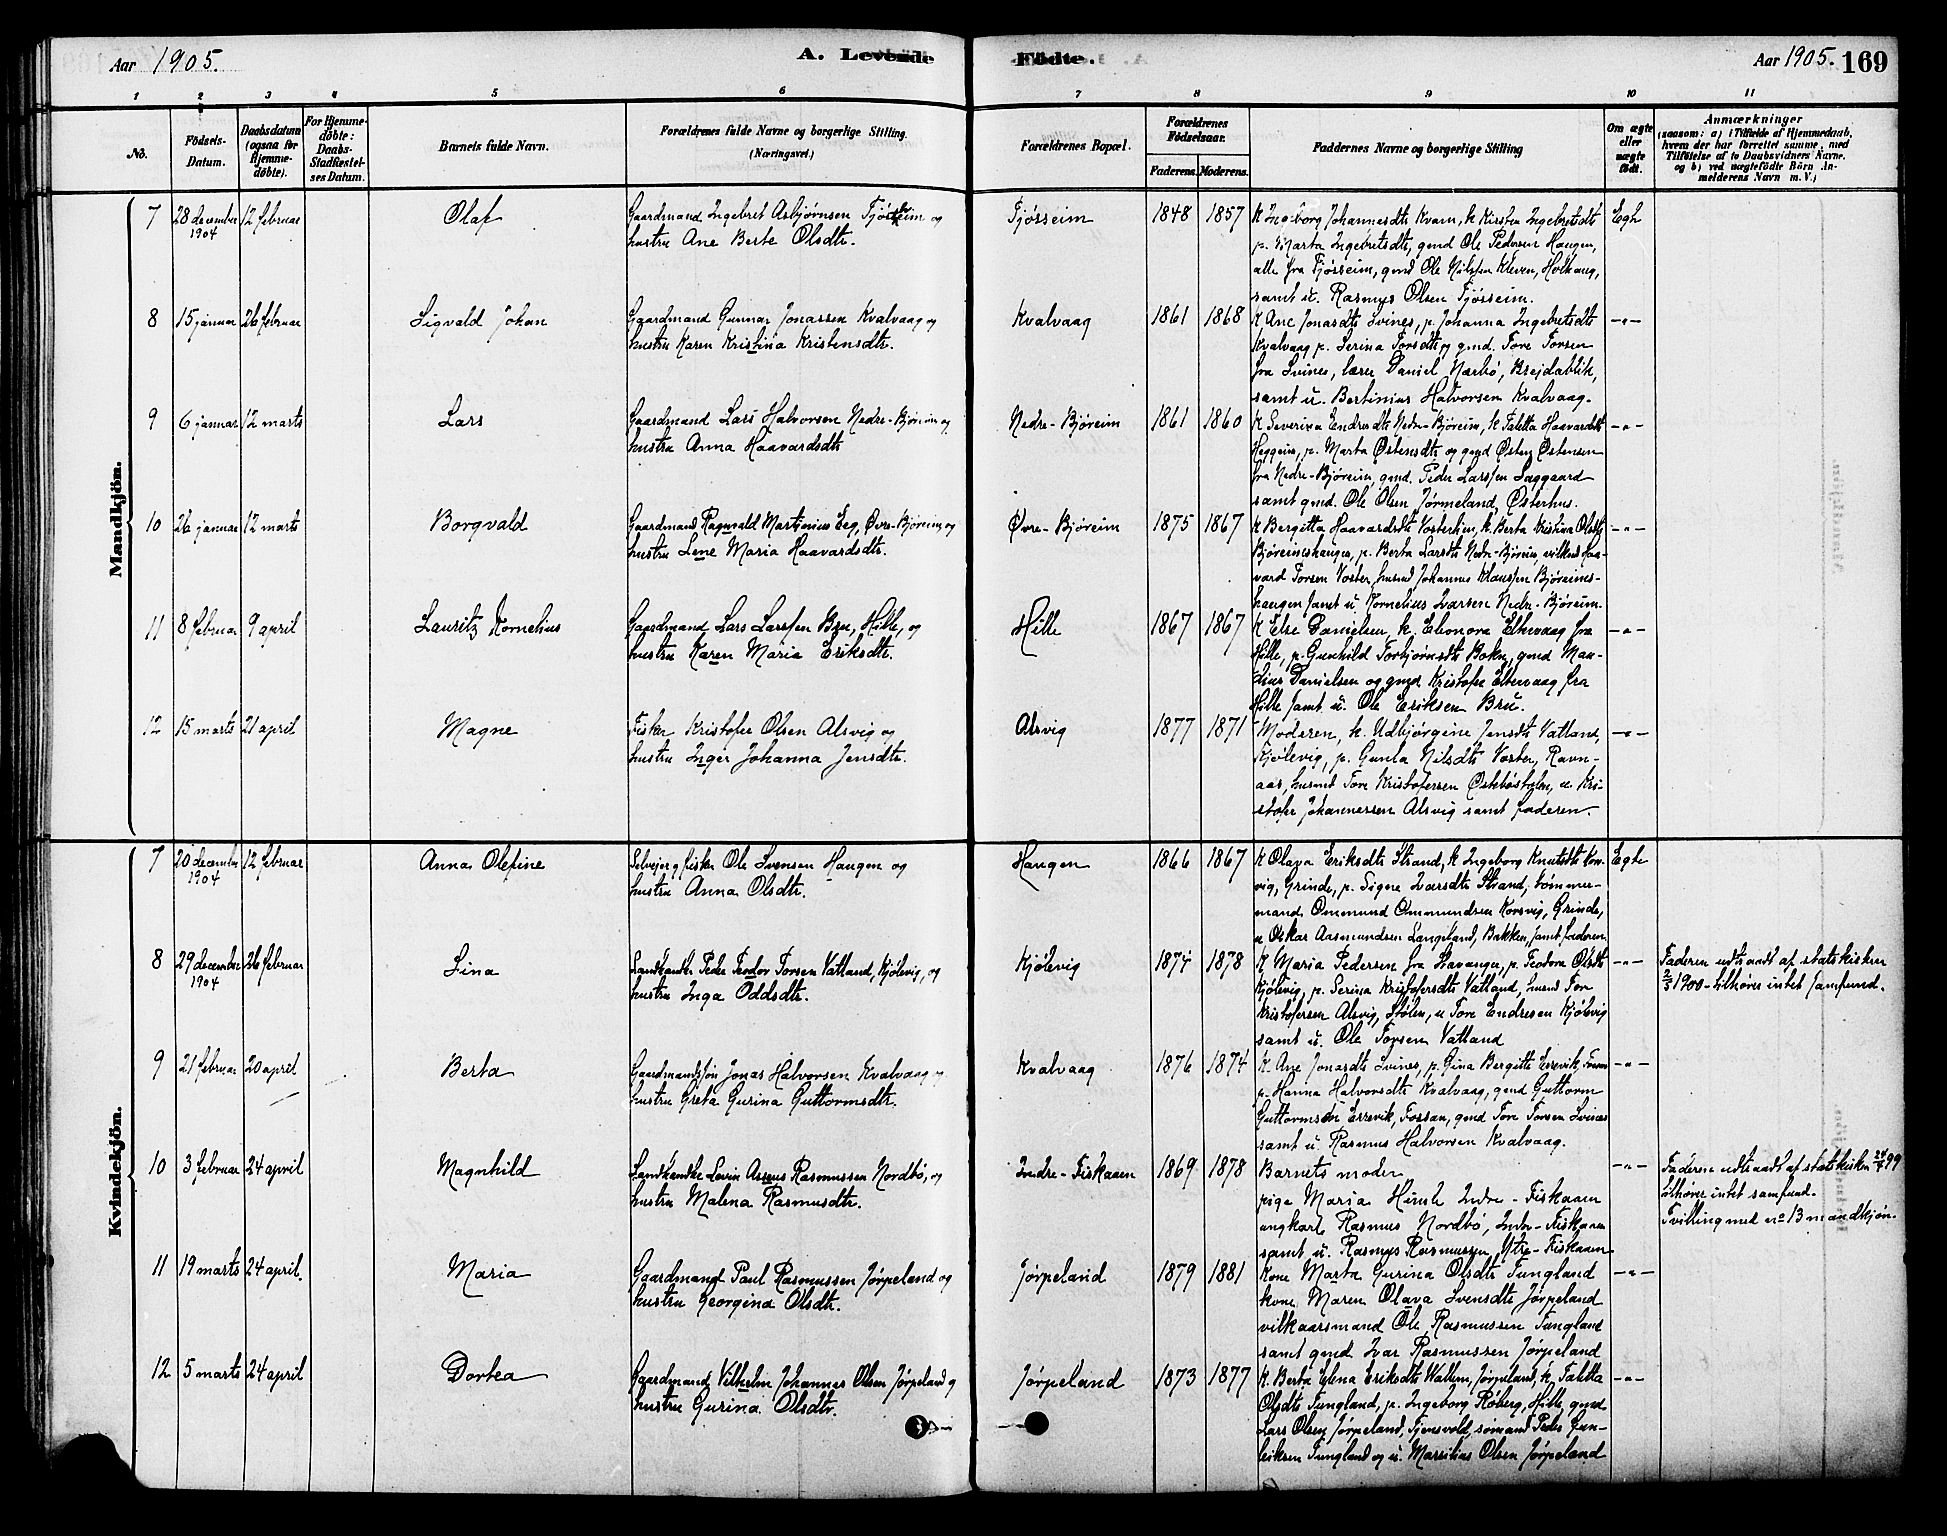 Aar 1905.
A. Levende
Fødte.
Aar 1905.
169
1 2 3 4 5 6 7 8 9 10 11
No.
Födsels-
Datum.
Daabsdatum
(ogsaa for
Hjemme-
døbte).
For Hjemme-
döbte:
Daabs-
Stadfæstel-
ses Datum.
Barnets fulde Navn.
Forældrenes fulde Navne og borgerlige Stilling.
(Næringsvei.)
Forældrenes Bopæl.
Forældrenes
Födselsaar.
Faderens.
Moderens.
Faddernes Navne og borgerlige Stilling
Om ægte
eller
uægte
født.
Anmærkninger
(saasom: a) i Tilfælde af Hjemmedaab,
hvem der har forrettet samme, med
Tilføielse af to Daabsvidners Navne,
og b) ved uægtefödte Börn An-
melderens Navn m. V.)
Mandkjön.
7 28 december 1904 12 februar Olaf
Gaardmand Ingebret Asbjørnsen Tjøsseim og
hustru Ane Berte Olsdtr.
Tjøsseim 1848 1857
K Ingeborg Johannesdtr Kvam, k Kirsten Ingebretsdtr
p. Marta Ingebretsdtr, gmd Ole Pedersen Haugen,
alle fra Tjøsseim, gmd Ole Nilssen Kleven, Holhaug,
samt u. Rasmus Olsen Tjøsseim.
Egte
8 15 januar 26 februar Sigvald Johan
Gaardmand Gunnar Jonassen Kvalvaag og
hustru Karen Kristina Kristensdtr.
Kvalvaag 1861 1868
K Ane Jonasdtr Svines, p. Johanna Ingebretsdtr
Kvalvaag p. Serina Torsdtr og gmd. Tore Torsen
fra Svines, lærer Daniel Nærbø, Breidablik,
samt u. Bertinius Halvorsen Kvalvaag.
—"—
9 6 januar 12 marts Lars
Gaardmand Lars Halvorsen Nedre-Bjøreim og
hustru Anna Haavardsdtr
Nedre-Bjøreim 1861 1860
K Severina Endresdtr Nedre-Bjøreim, k Taletta Haavardsdtr
Heggeim, p. Marta Østensdtr og gmd Østen Østensen
fra Nedre-Bjøreim, gmd. Peder Larssen Laggaard
samt gmd. Ole Olsen Jørmeland, Østerhus.
—"—
10 26 januar 12 marts Borgvald
Gaardmand Ragnvald Martinius Eeg, Øvre-Bjøreim og
hustru Lene Maria Haavardsdtr.
Øvre-Bjøreim 1875 1867
K Bergitta Haavardsdtr Vosterheim, k. Berta Kristina Olsdtr
Bjøreimshaugen, p. Berta Larsdtr Nedre-Bjøreim, vilkmd Haa-
vard Torsen Voster, husmd Johannes Klaussen Bjøreims-
haugen samt u. Kornelius Ivarsen Nedre-Bjøreim.
—"—
11 8 februar 9 april Lauritz Kornelius
Gaardmand Lars Larssen Bru, Hille, og
hustru Karen Maria Eriksdtr.
Hille 1867 1867
K Else Danielsen k. Eleonora Eltervaag fra
Hille, p. Gunhild Torbjørnsdtr Bokn, gmd Mau-
Danielsen og gmd Kristofer Eltervaag fra
Hille samt u. Ole Eriksen Bru.
—"—
12 15 marts 21 april Magne
Fisker Kristofer Olsen Alsvig og
hustru Inger Johanna Jensdtr.
Alsvig 1877 1871
Moderen, k. Udbjørgine Jensdtr Vatland,
Kjølevig, p. Gunla Nilsdtr Voster, Ravn-
aas, husmd Tore Kristofersen Østebøstølen, u. Kri-
stofer Johannessen Alsvig samt faderen.
—"—
Kvindekjön.
7 20 december 1904 12 februar Anna Olefine
Selveier og fisker Ole Svensen Haugen og
hustru Anna Olsdtr.
Haugen 1866 1867
K Olava Eriksdtr Strand, k Ingeborg Knutsdtr Kors-
vig, Grinde, p. Signe Ivarsdtr Strand, tømmer-
mand Ommund Ommundsen Korsvig, Grinde,
u Oskar Aasmundsen Langeland, Bakken, samt faderen
Egte
8 29 december 1904 26 februar Lina
Landhandler Peder Teodor Torsen Vatland, Kjølevig, og
hustru Inga Oddsdtr.
Kjølevig 1874 1878
K Maria Pedersen fra Stavanger, p. Teodora Olsdtr
Kjølevig, p. Serina Kristofersdtr Vatland, husmd Tore
Kristofersen Alsvig, Stølen, u Tore Endresen Kjølevig
samt u. Ole Torsen Vatland
—"—
Faderen udtraadt af statskirken
2/5 1900 - tilhører intet samfund.
9 21 februar 20 april Berta
Gaardmandssøn Jonas Halvorsen Kvalvaag og
hustru Greta Gurina Guttormsdtr.
Kvalvaag 1876 1874
K. Ane Jonasdtr Svines, p. Gina Bergitte Erevik, Fossan
p. Hanna Halvorsdtr Kvalvaag, gmd Guttorm
Guttormsen Erevik, Fossan, gmd Tore Torsen Svines
samt u Rasmus Halvorsen Kvalvaag.
—"—
10 3 februar 24 april Magnhild
Landhandler Levin Rasmussen Nordbø, og
hustru Malena Rasmusdtr.
Indre-Fiskaaen 1869 1878
Barnets moder
pige Maria Indre-Fiskaaen
ungkarl Rasmus Nordbø, Indre-Fiskaaen
samt u. Rasmus Rasmussen, Ytre-Fiskaaen
—"—
Faderen udtraadt af statskirken 99
tilhører intet samfund.
Tvilling med no 13 mandkjøn.
11 19 marts 24 april. Maria
Gaardmand Paul Rasmussen Jørpeland og
hustru Georgina Olsdtr.
Jørpeland 1879 1881
Kone Marta Gurina Olsdtr Tungland
kone Maren Olava Svensdtr Jørpeland
vilkaarsmand Ole Rasmussen Tungland
samt gmd Ivar Rasmussen Jørpeland
—"—
12 5 marts 24 april Dortea
Gaardmand Vilhelm Johannes Olsen Jørpeland og
hustru Gurina Olsdtr.
Jørpeland 1873 1877
K. Berta Elena Eriksdtr Wallem, Jørpeland, k, Taletta
Olsdtr Tungland, p. Ingeborg Røberg, Hille, gmd
Lars Olsen Jørpeland, Tjensvold, sømand Peder
Tungland og u. Marselius Olsen Jørpeland
—"—